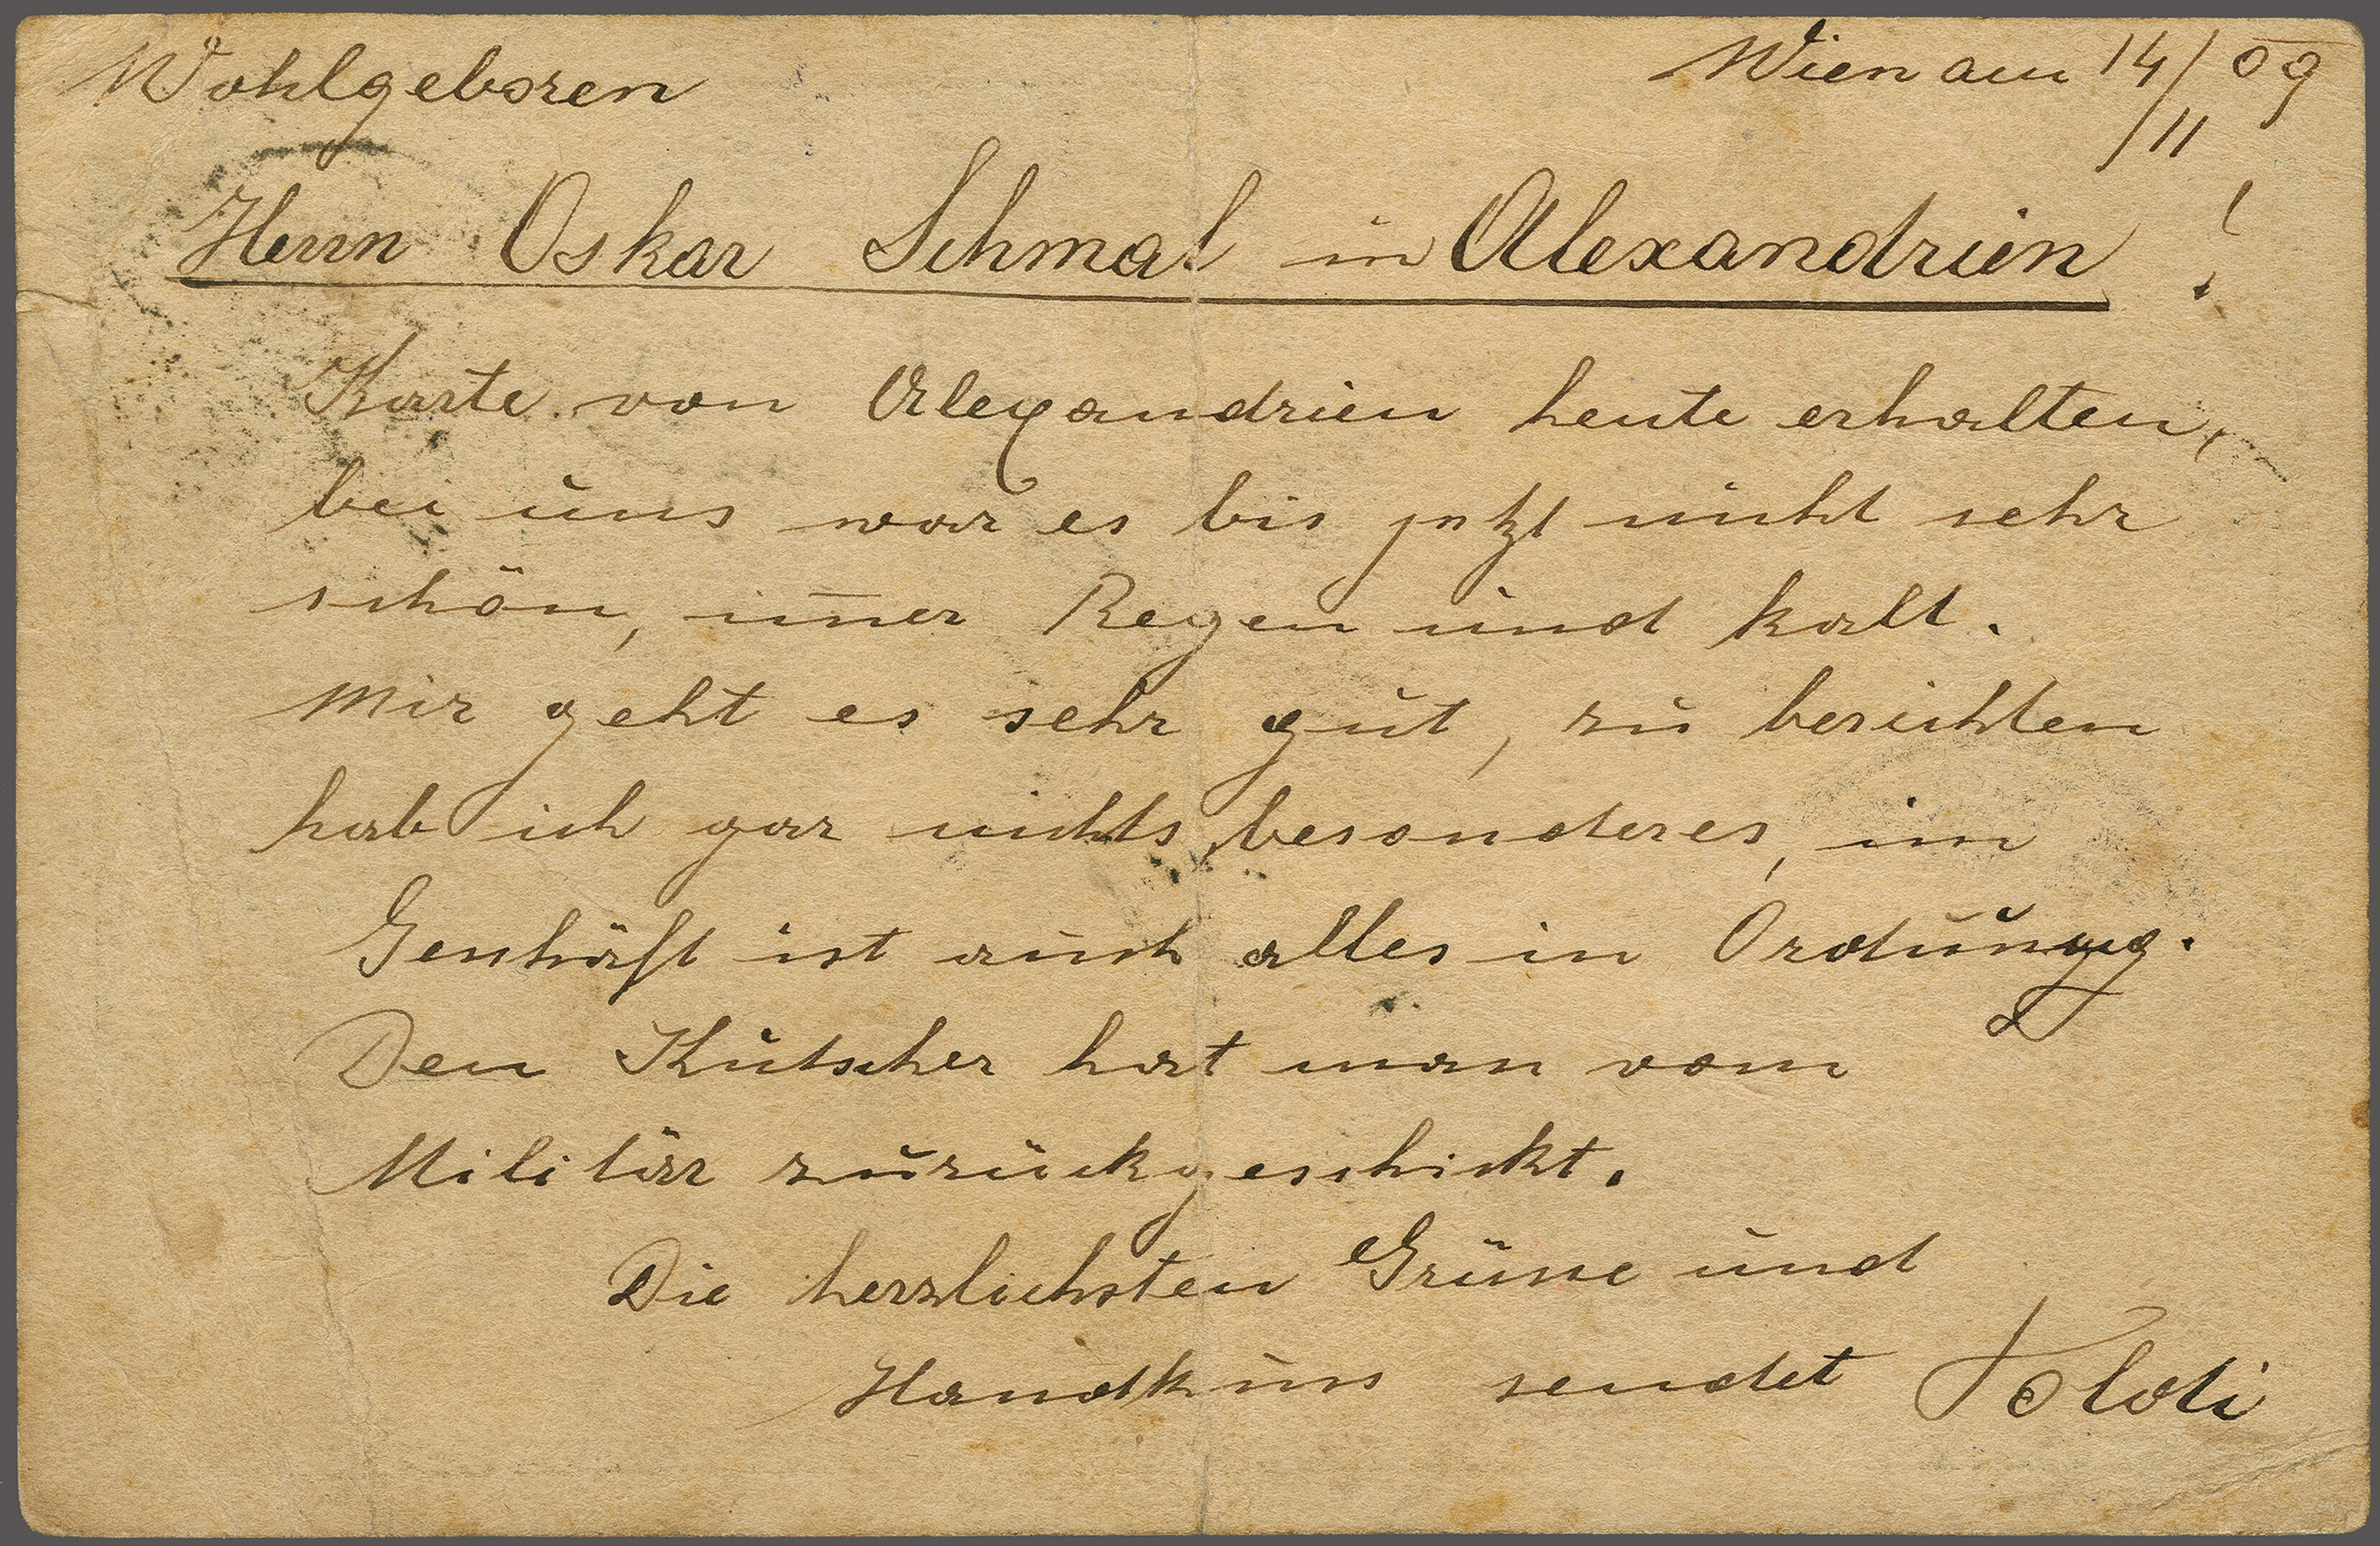 Wohlgeboren
Wien am 14/11 09
Herrn Oskar Schmal in Alexandrien!
Karte von Alexandrien heute erhalten,
bei uns war es bis jetzt nicht sehr
schön, im̅er Regen und kalt.
Mir geht es sehr gut, zu berichten
hab ich gar nichts besonderes, im
Geschäft ist auch alles in Ordnung.
Den Kutscher hat man vom
Militär zurückgeschickt.
Die herzlichsten Grüsse und
Handkuss sendet Poldi